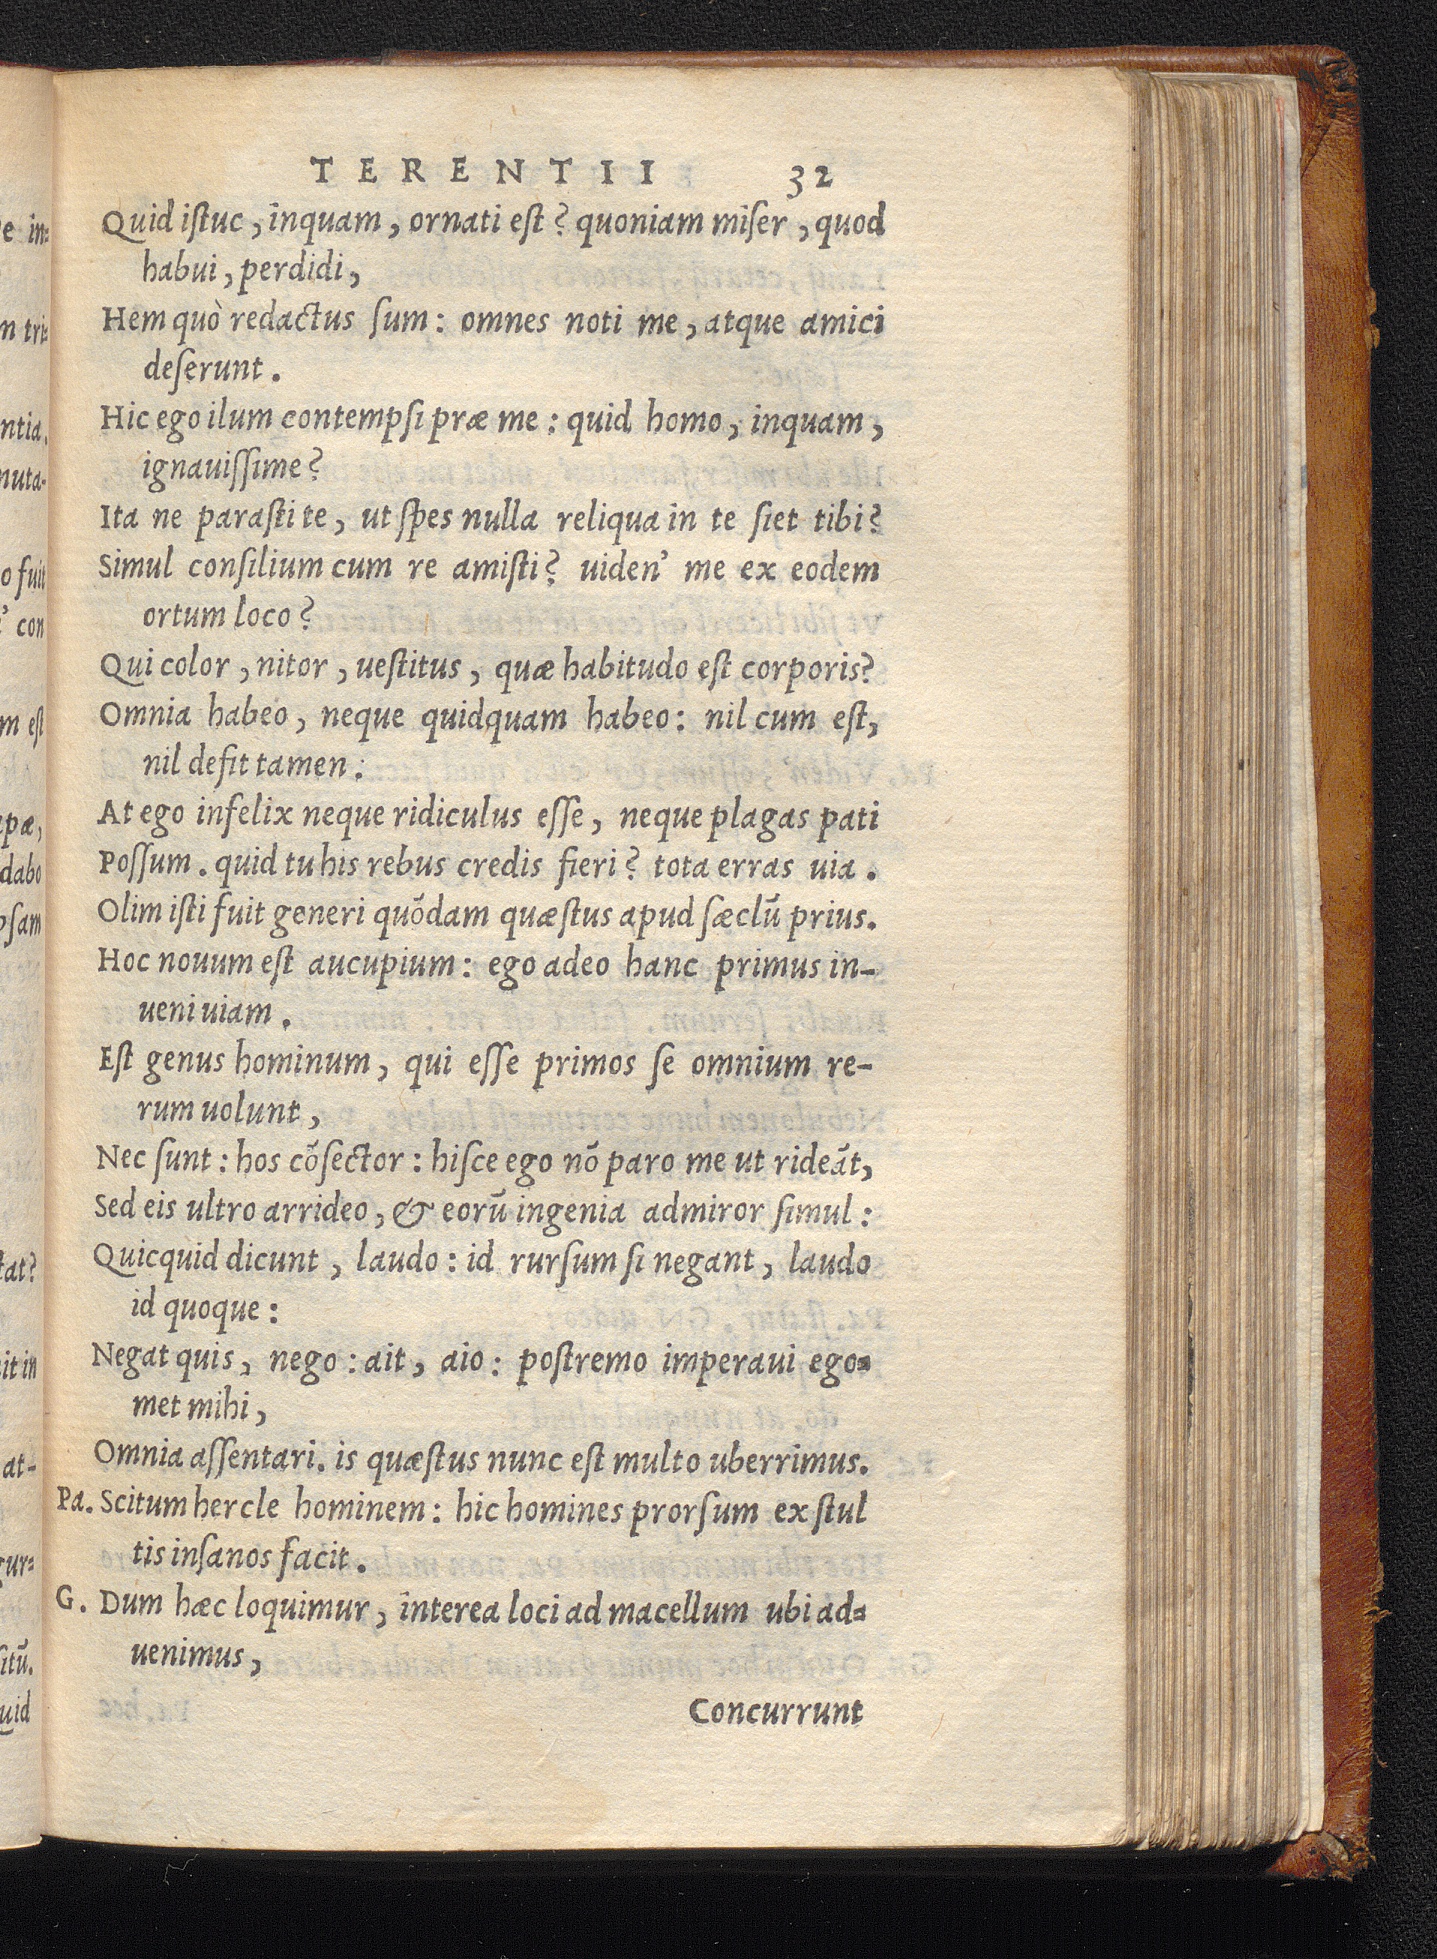 TERENTII 32
Quid iſtuc, inquam, ornati eſt? quoniam miſer, quod
habui, perdidi,
Hem quò redactus ſum: omnes noti me, atque amici
deſerunt.
Hic ego ilum contempſi præ me: quid homo, inquam,
ignauiſſime?
Ita ne paraſti te, ut ſpes nulla reliqua in te ſiet tibi?
Simul conſilium cum re amiſti? uiden' me ex eodem
ortum loco?
Qui color, nitor, ueſtitus, quæ habitudo eſt corporis?
Omnia habeo, neque quidquam habeo: nil cum eſt,
nil defit tamen:
At ego infelix neque ridiculus eſſe, neque plagas pati
Poſſum. quid tu his rebus credis fieri? tota erras uia.
Olim iſti fuit generi quōdam quæſtus apud ſæclū prius.
Hoc nouum eſt aucupium: ego adeo hanc primus in-
ueni uiam.
Eſt genus hominum, qui eſſe primos ſe omnium re-
rum uolunt,
Nec ſunt: hos cōſector: hiſce ego nō paro me ut rideāt,
Sed eis ultro arrideo, & eorū ingenia admiror ſimul:
Quicquid dicunt, laudo: id rurſum ſi negant, laudo
id quoque:
Negat quis, nego: ait, aio: poſtremo imperaui ego-
met mihi,
Omnia aſſentari. is quæſtus nunc eſt multo uberrimus.
Pa. Scitum hercle hominem: hic homines prorſum ex ſtul
tis inſanos facit.
G. Dum hæc loquimur, interea loci ad macellum ubi ad-
uenimus,
Concurrunt